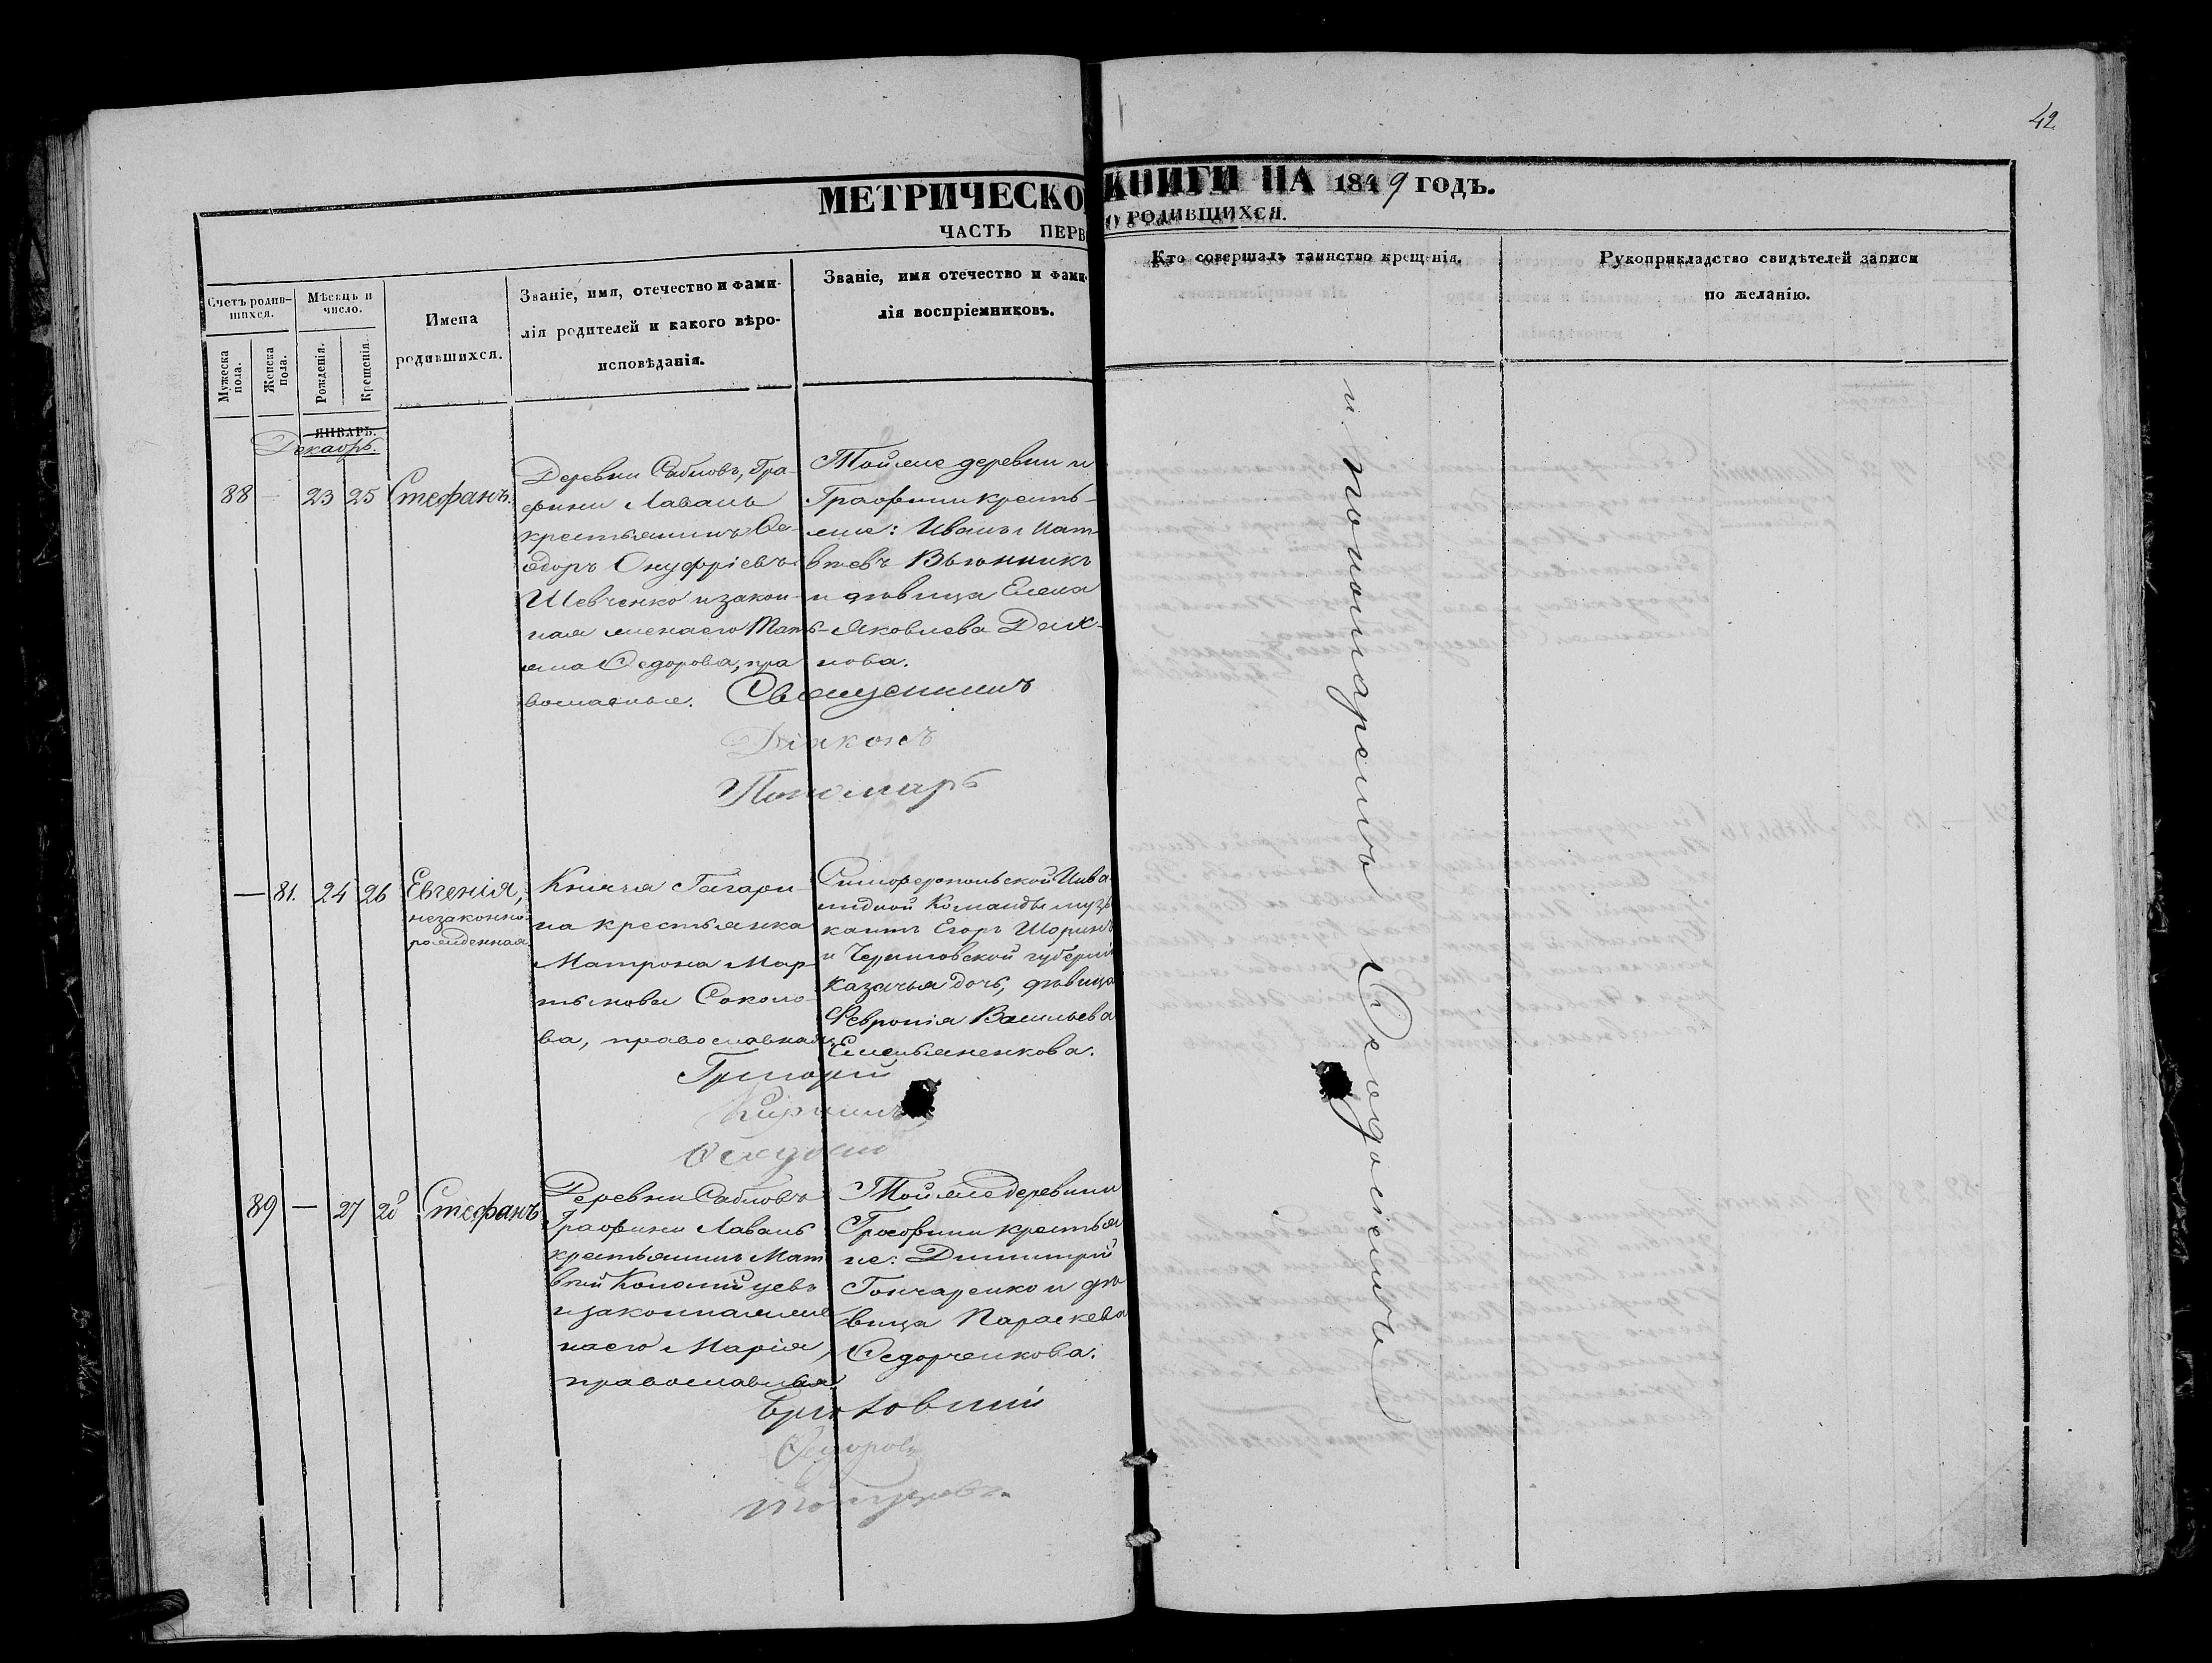 42
МЕТРИЧЕСКО КНИГИ НА 1849 ГОДЪ.
ЧАСТЬ ПЕРВ О РОДИВШИХСЯ.
Счетъ родив-
шихся.
Мужеска пола.
Женска пола.
Мѣсяцъ и
число.
Рожденія.
Крещенія.
Имена
родившихся.
Званіе, имя, отечество и фами-
лія родителей и какого вѣро-
исповѣданія.
Званіе, имя отечество и фами-
лія воспріемниковъ.
Кто совершалъ таинство крещенія.
Рукоприкладство свидѣтелей записи
по желанію.
ЯНВАРЬ.
Декабрь.
88 - 23 25 Стефанъ.
Деревни Сабловъ, Гра-
фини Лаваль
крестьянинъ Ѳе-
одоръ Онуфріевъ
Шевченко и закон-
ная жена его Тать-
яна Ѳедорова, пра
вославные.
Той же деревни и
Графини кресть-
яне: Иванъ Мат-
вѣевъ Вьюнникъ
и дѣвица Елена
Яковлева
нова.
Священникъ
Діаконъ
Пономарь
— 81. 24 26 Евгенія,
незаконно-
рожденная
Княгя Гагари-
на крестьянка
Матрона Мар-
тынова Соколо-
ва, православная.
Симферопольской Инва-
лидной Команды музы
кантъ Егоръ Шоринъ
и Черниговской губерніи
казачья дочь, дѣвица
Февронія Васильева
Емельяненкова.
Григорій
Кириллъ
Ѳеодосій
89 — 27 28 Стефанъ
Деревни Сабловъ
Графини Лаваль
крестьянинъ Мат
вѣй Коломійцевъ
и законная же
на его Марія,
православныя.
Той же деревни и
Графини крестья
не: Димитрій
Гончаренко и дѣ
вица Параскева
Ѳедорченкова.
Ѳедоровъ
и пономаремъ Ѳеодосіемъ